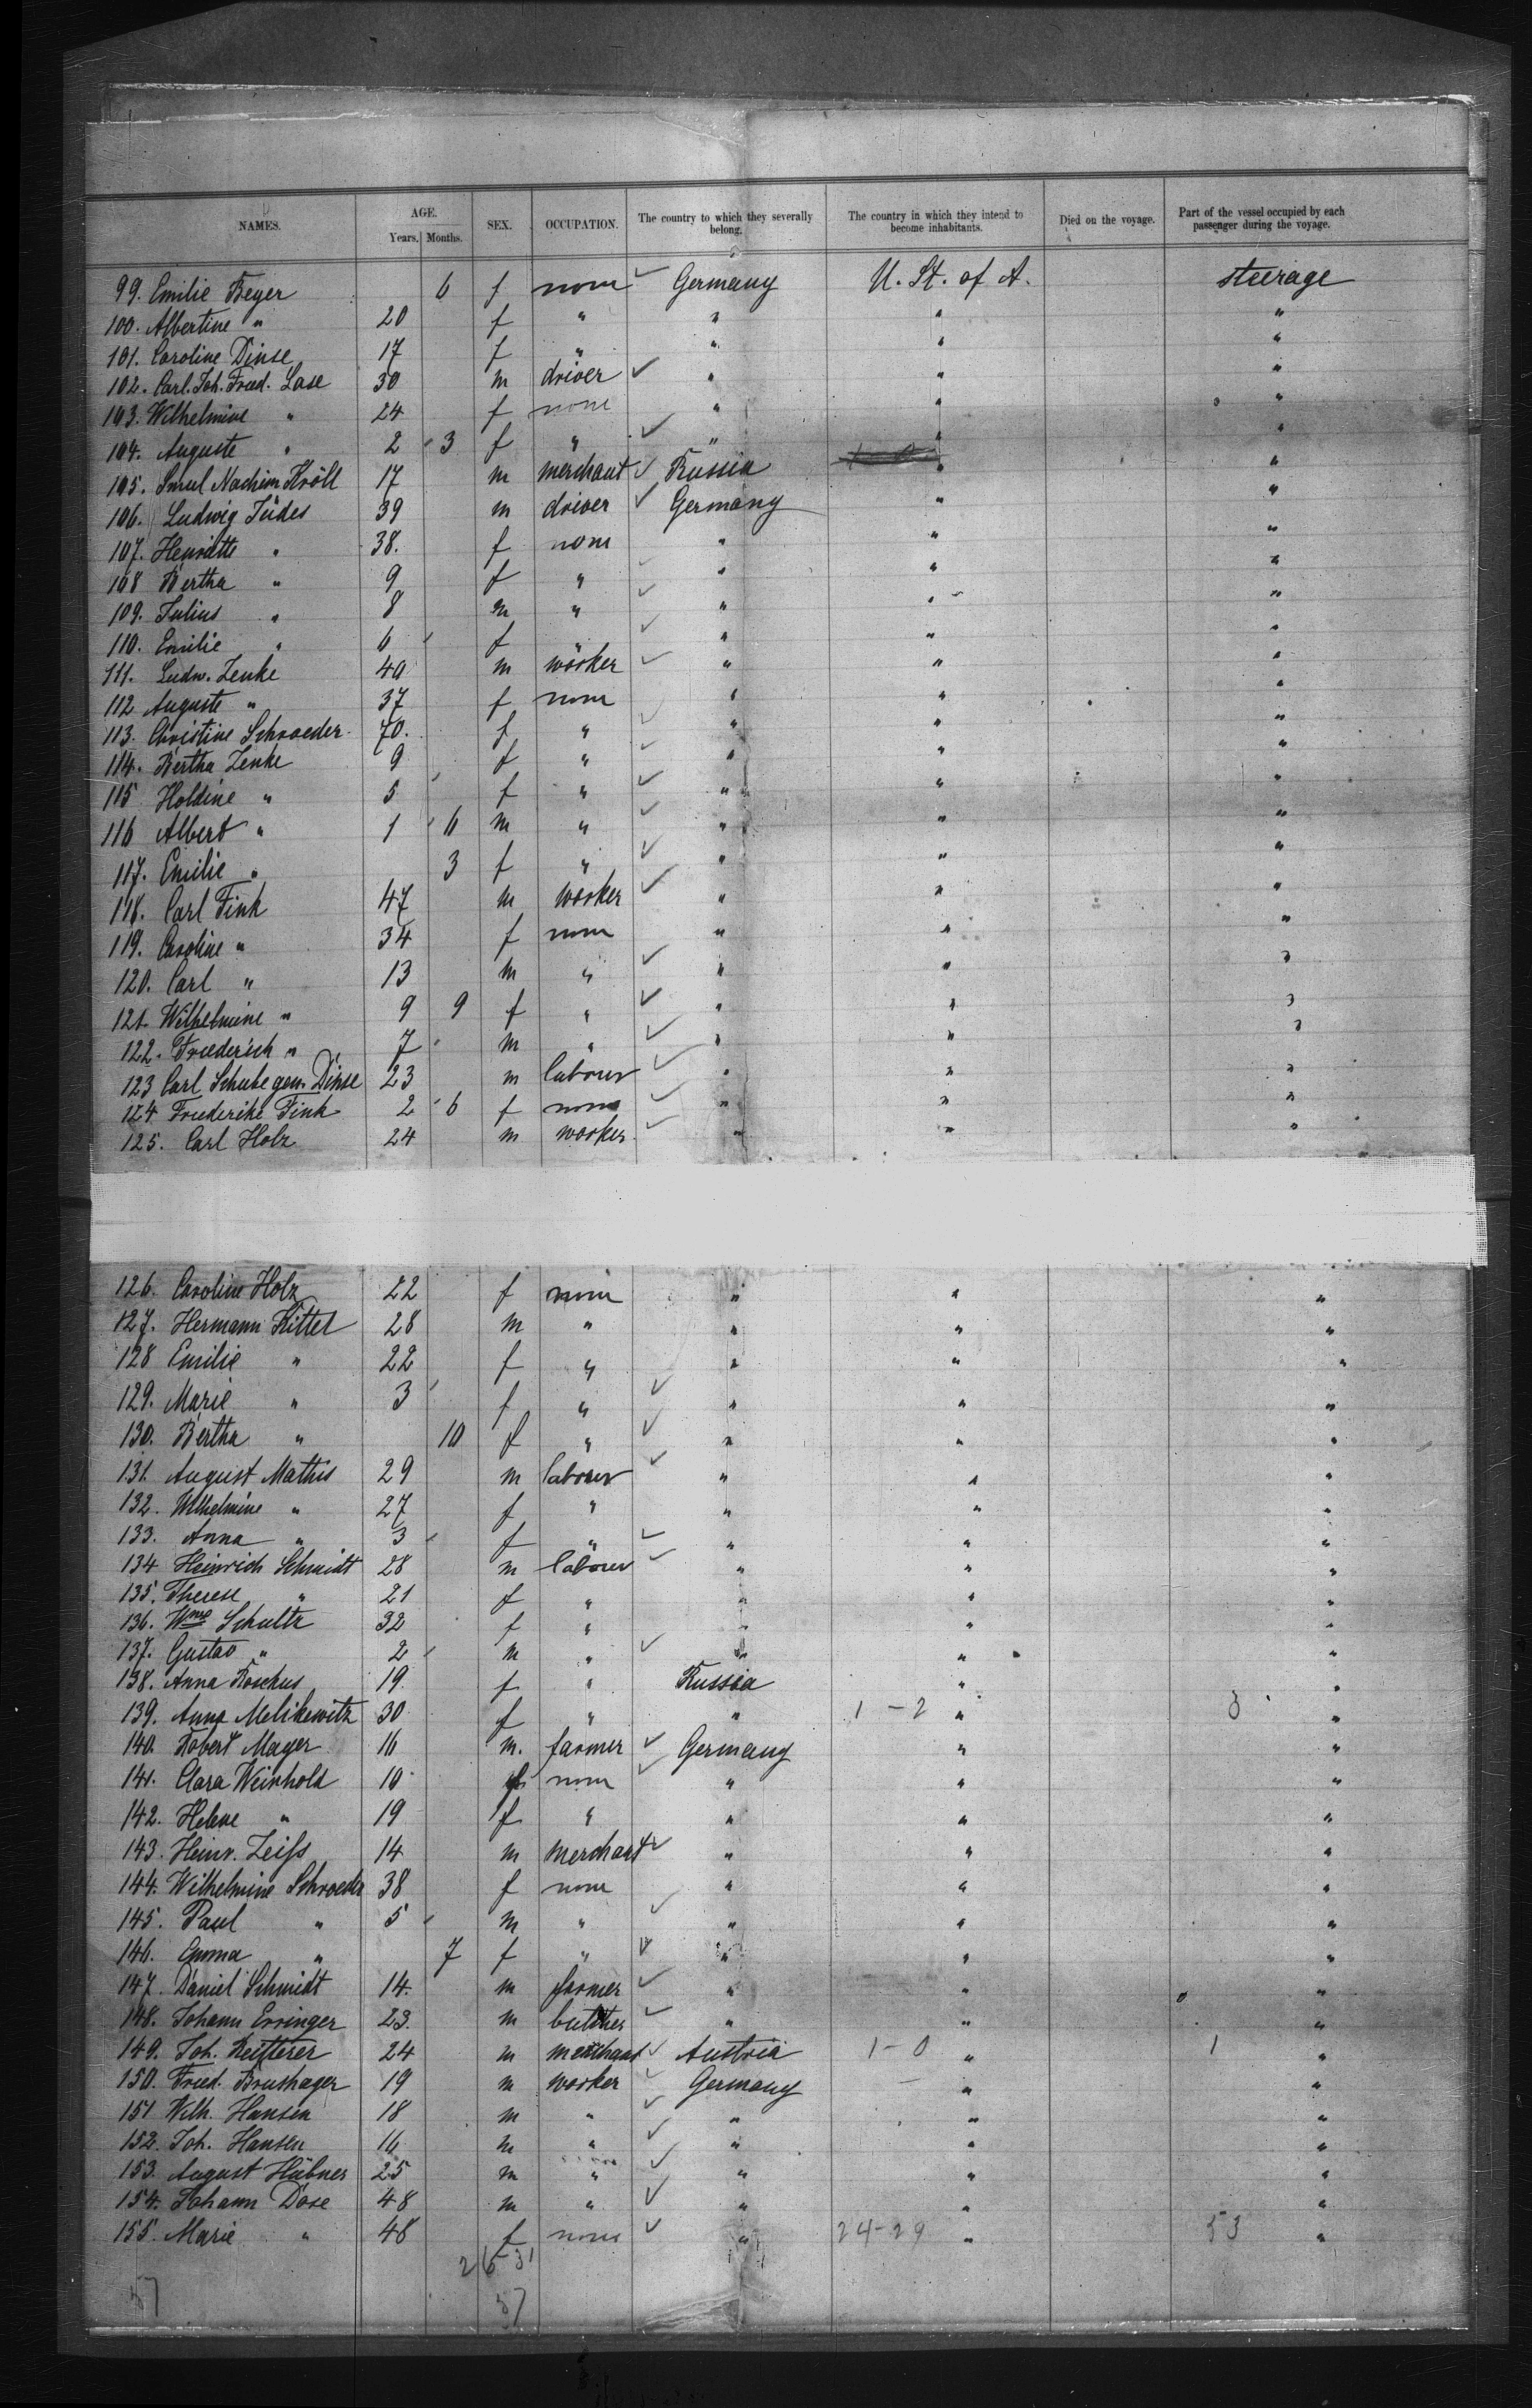 NAMES. AGE. SEX. OCCUPATION. The country to which they severally belong. The country in which they intend to become inhabitants. Died on the voyage. Part of the vessel occupied by each passenger during the voyage.
Years. Months.
99. Emilie Beyer 6 f none Germany U. St. of A. steerage
100. Albertine " 20 f " " " "
101. Caroline Dinse 17 f " " " "
102. Carl. Joh. Fried. Lase 30 m driver " " "
103. Wilhelmine " 24 f none " " "
104. Auguste " 2 3 f " " " "
105. Smul Nachim Kröll 17 m merchant Russia " "
106. Ludwig Jüdes 39 m driver Germany " "
107. Henriette " 38. f none " " "
108 Bertha " 9 f " " " "
109. Julius " 8 m " " " "
110. Emilie " 6 f " " " "
111. Ludw. Zenke 40 m worker " " "
112 Auguste " 37 f none " " "
113. Christine Schroeder 70. f " " " "
114. Bertha Zenke 9 f " " " "
115 Holdine " 5 f " " " "
116 Albert " 1 6 m " " " "
117. Emilie " 3 f " " " "
118. Carl Fink 47 m worker " " "
119. Caroline " 34 f none " " "
120. Carl " 13 m " " " "
121. Wilhelmine " 9 9 f " " " "
122. Friederich " 7 m " " " "
123 Carl Schube gen. Dinse 23 m laborer " " "
124 Friederike Fink 2 6 f none " " "
125. Carl Holz 24 m worker " " "
126. Caroline Holz 22 f none " " "
127. Hermann Kittel 28 m " " " "
128 Emilie " 22 f " " " "
129. Marie " 3 f " " " "
130. Bertha " 10 f " " " "
131. August Mathis 29 m laborer " " "
132. Wilhelmine " 27 f " " " "
133. Anna " 3 f " " " "
134 Heinrich Schmidt 28 m laborer " " "
135. Therese " 21 f " " " "
136. Wme Schultz 32 f " " " "
137. Gustav " 2 m " " " "
138. Anna Roschus 19. f " Russia " "
139. Anna Melikewitz 30 f " " 1-2 " 3 "
140. Robert Mayer 16 m. farmer Germany " "
141. Clara Weinhold 10 f none " " "
142. Helene " 19 f " " " "
143. Heinr. Zeiſs 14 m merchant " " "
144. Wilhelmine Schroeder 38 f none " " "
145. Paul " 5 m " " " "
146. Emma " 7 f " " " "
147. Daniel Schmidt 14. m farmer " " "
148. Johann Erringer 23. m butcher " " "
149. Joh. Reitterer 24 m merchant Austria 1-0 " 1 "
150. Fried. Brushager 19 m worker Germany " "
151 Wilh. Hansen 18 m " " " "
152. Joh. Hansen 16 m " " " "
153. August Hübner 25 m " " " "
154. Johann Dose 48 m " " " "
155. Marie " 48 f none " 24-29 " 53 "
26 31
57 57